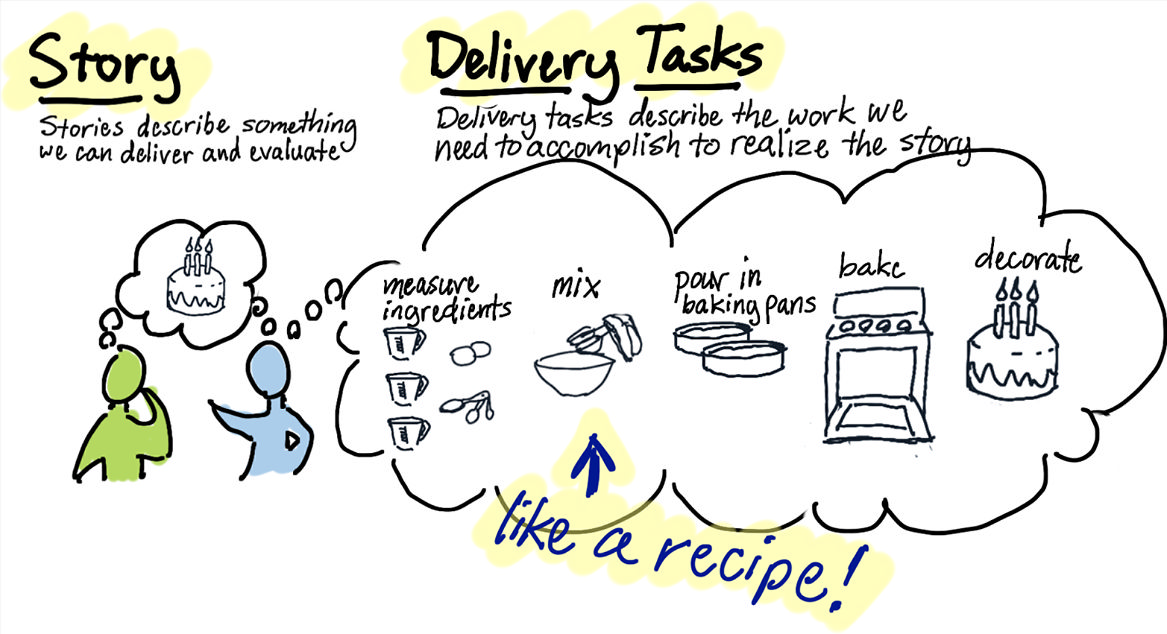 Story
Stories describe something
we can deliver and evaluate
Delivery Tasks
Delivery tasks describe the work we
need to accomplish to realize the story
measure
ingredients
mix
pour in
baking pans
bake
decorate
like a recipe!